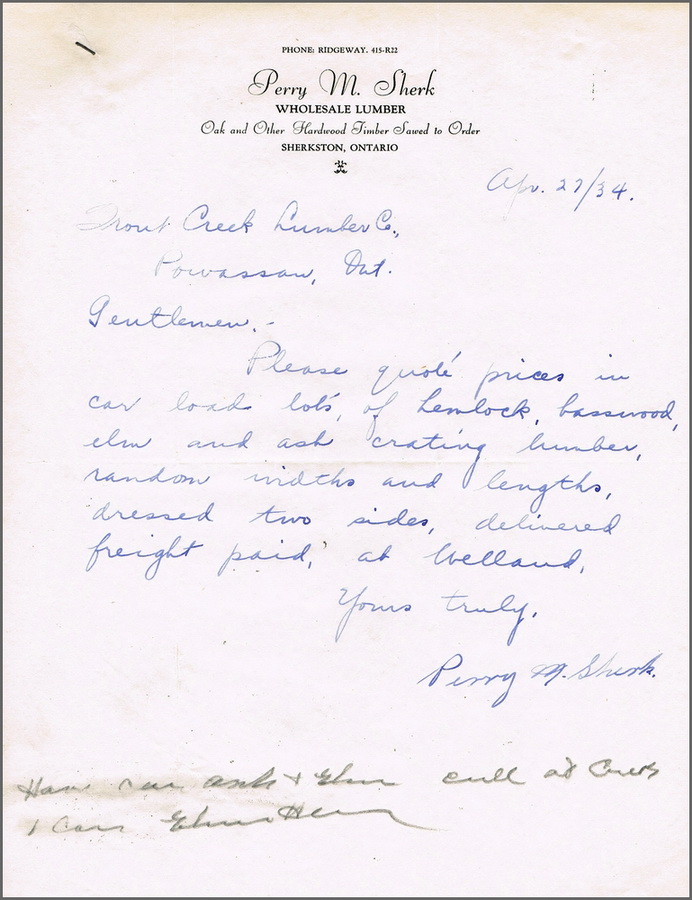 PHONE: RIDGEWAY. 415-R22
Perry M. Sherk
WHOLESALE LUMBER
Oak and Other Hardwood Timber Sawed to Order
SHERKSTON, ONTARIO
Apr. 27/34.
Trout Creek Lumber Co.,
Powassan, Ont.
Gentlemen.-
Please quote prices in
car load lots, of hemlock, basswood,
elm and ash crating lumber,
random widths and lengths,
dressed two sides, delivered
freight paid, at Welland.
Yours truly,
Perry M. Sherk.
Have car ash & Elm cull at
1 Car Elm